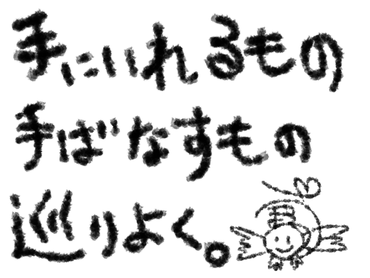 手にいれるもの
手ばなすもの
巡りよく。